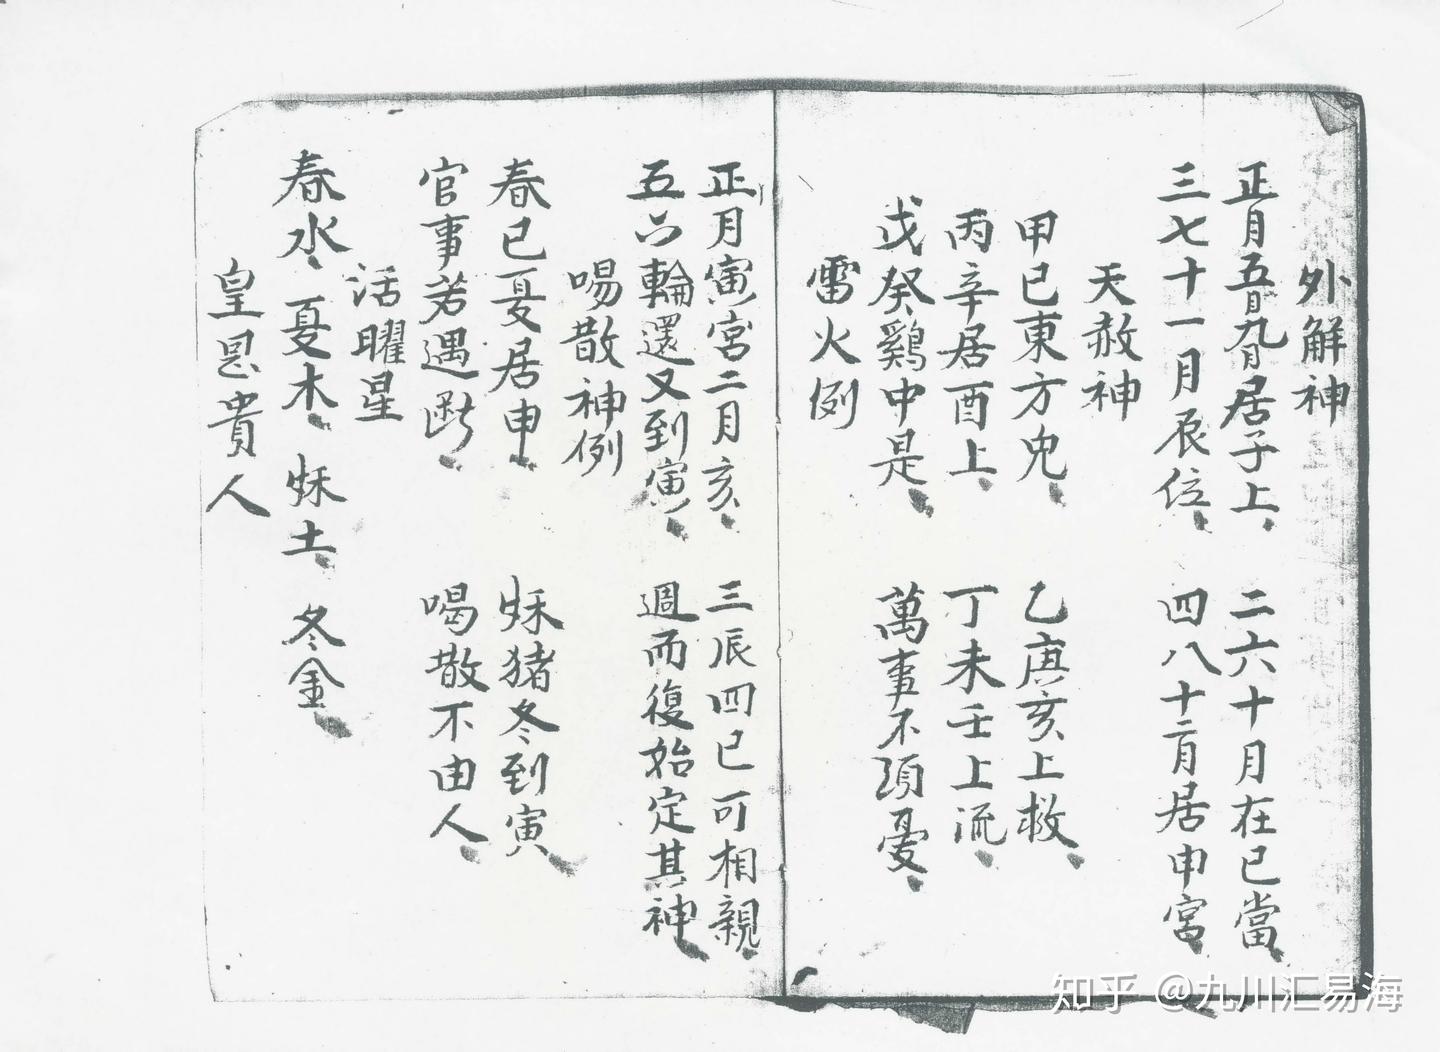 外解神
正月五月九月居子上、二六十月在巳當、
三七十一月辰位、四八十二月居申宮、
天赦神
甲己東方兎、乙庚亥上救、
丙辛居酉上、丁未壬上流、
戊癸鷄中是、萬事不須憂、
雷火例
正月寅宮二月亥、三辰四巳可相親、
五六輪還又到寅、週而復始定其神、
喝散神例
春巳夏居申、秌猪冬到寅、
官事若遇斯、喝散不由人、
活曜星
春水、夏木、秌土、冬金、
皇恩貴人
知乎 @九川汇易海